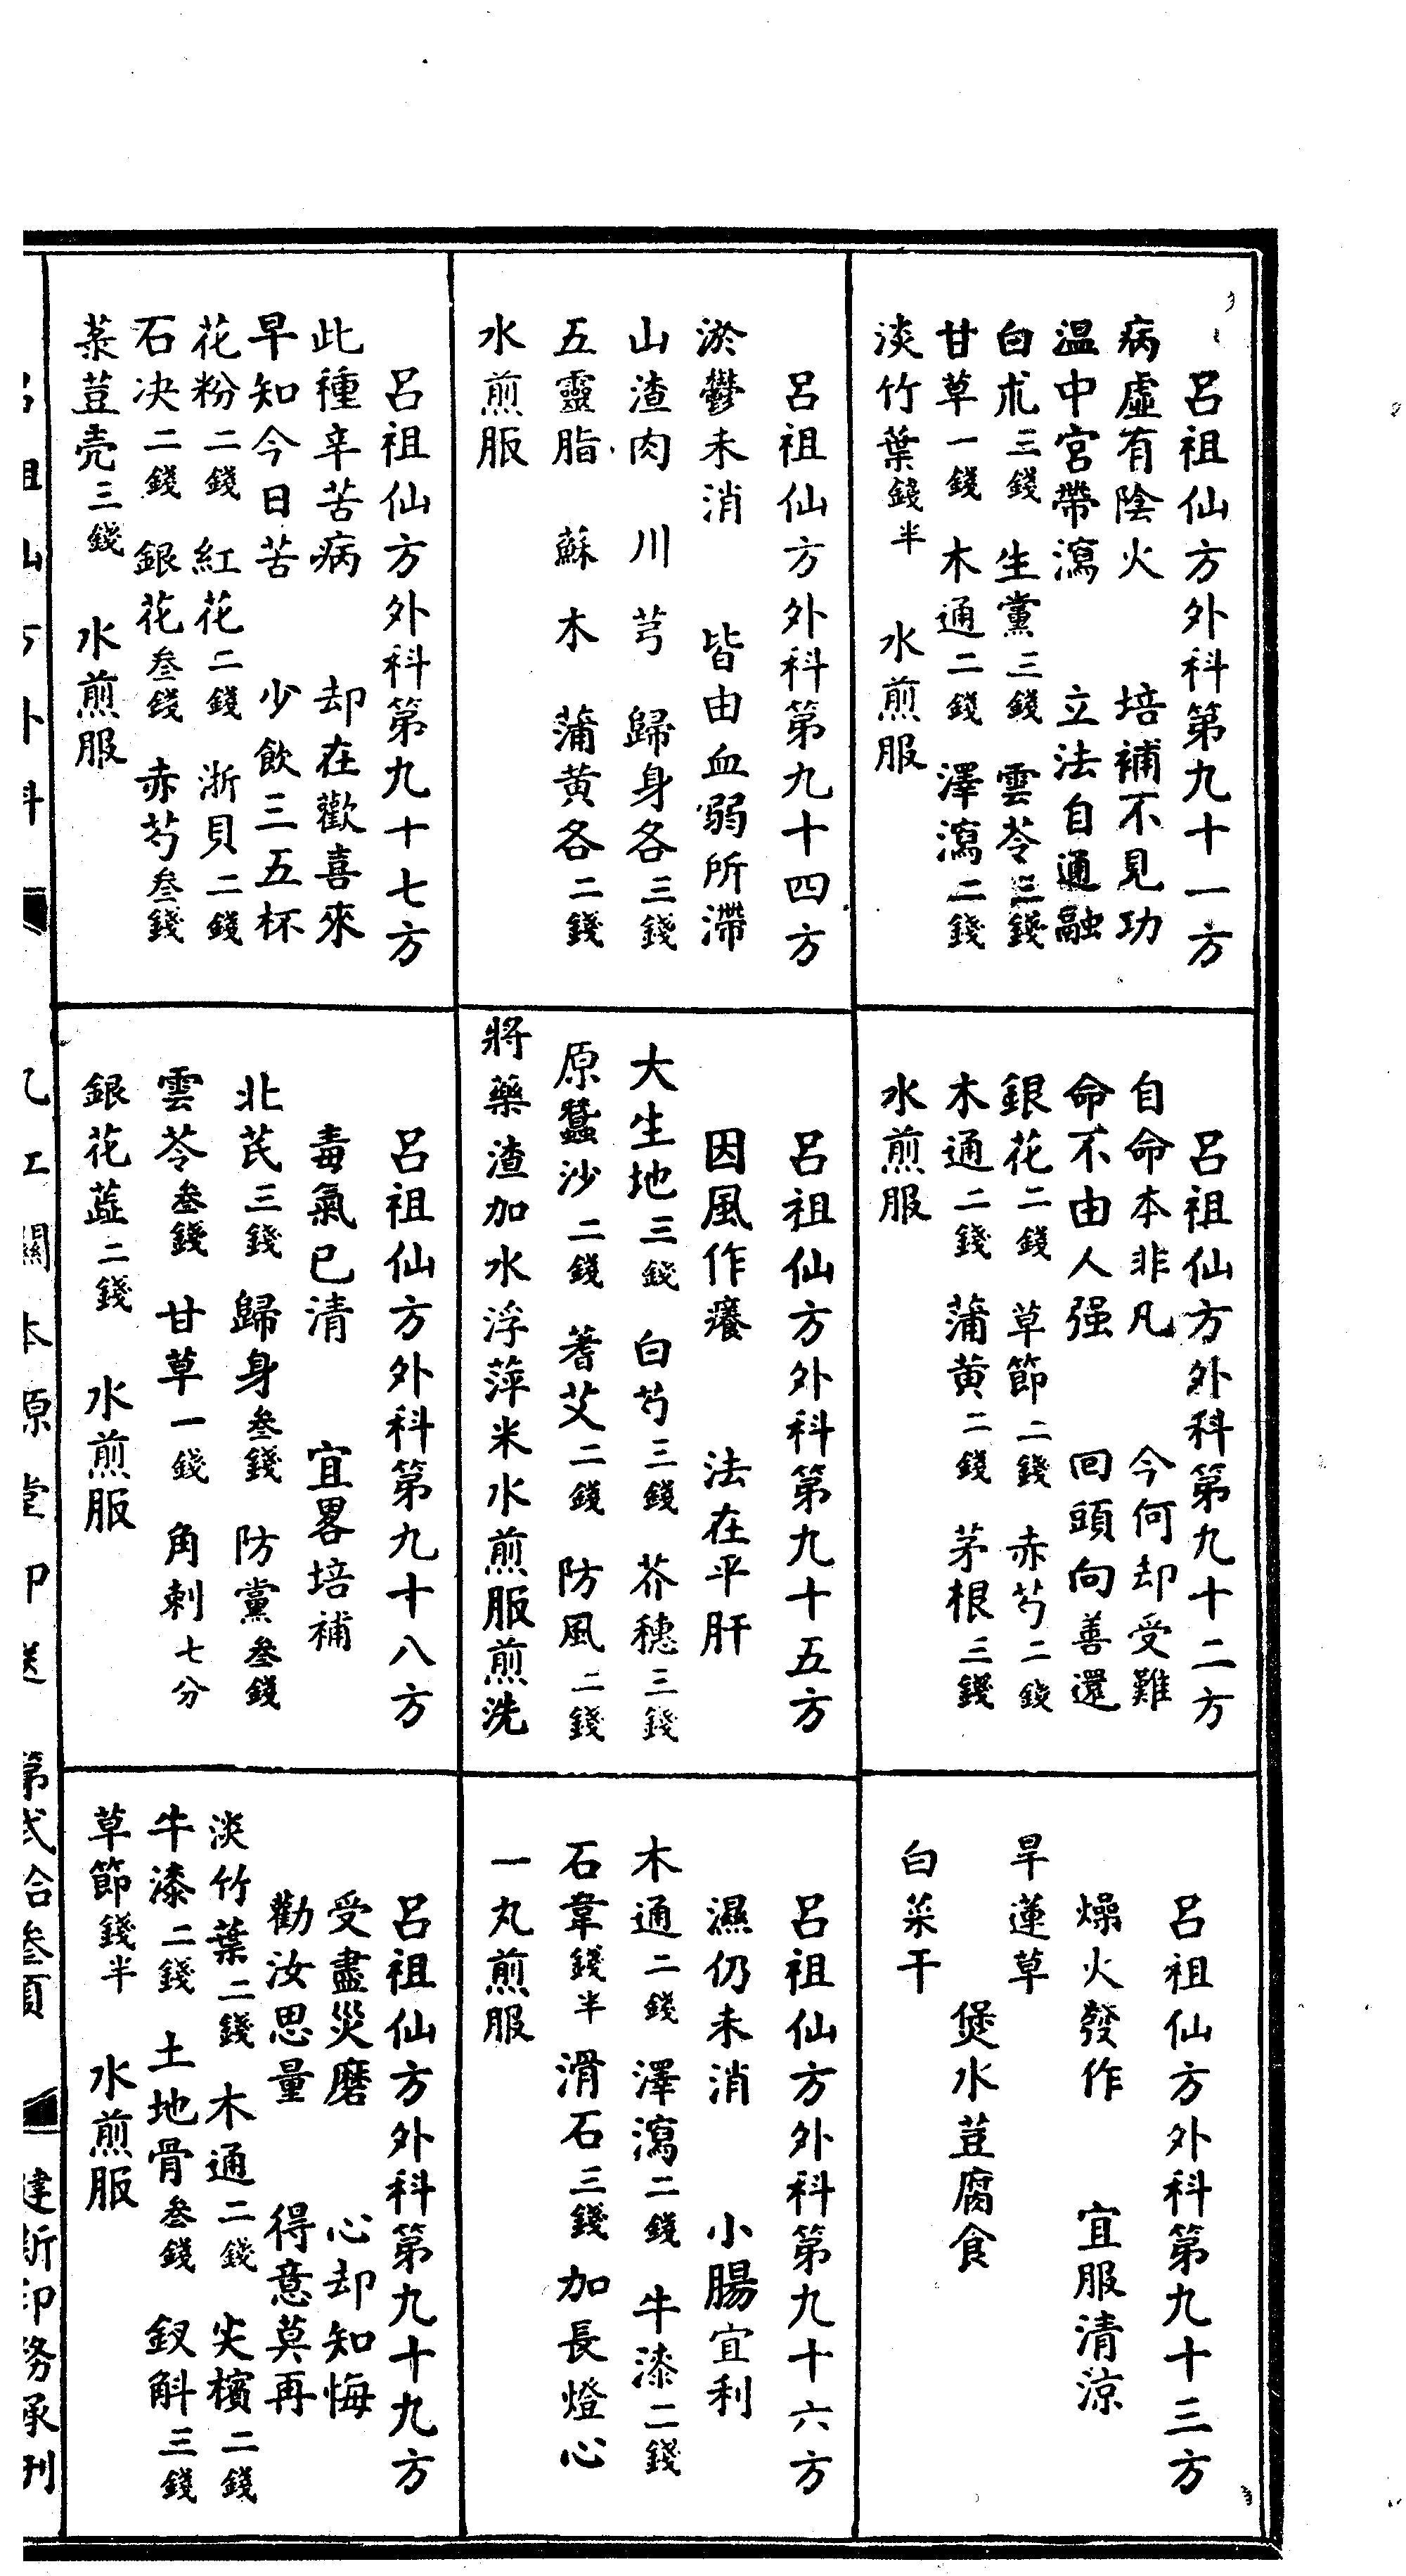 呂祖仙方外科第九十一方
病虛有陰火　培補不見功
溫中宮帶瀉　立法自通融
白朮三錢　生黨三錢　雲苓三錢
甘草一錢　木通二錢　澤瀉二錢
淡竹葉錢半　水煎服
呂祖仙方外科第九十二方
自命本非凡　今何却受難
命不由人强　回頭向善還
銀花二錢　草節二錢　赤芍二錢
木通二錢　蒲黃二錢　茅根三錢
水煎服
呂祖仙方外科第九十三方
燥火發作　宜服清涼
旱蓮草
煲水荳腐食
白菜干
呂祖仙方外科第九十四方
淤鬱未消　皆由血弱所滯
山渣肉　川芎　歸身各三錢
五靈脂　蘇木　蒲黃各二錢
水煎服
呂祖仙方外科第九十五方
因風作癢　法在平肝
大生地三錢　白芍三錢　芥穗三錢
原蠶沙二錢　蓍艾二錢　防風二錢
將藥渣加水浮萍米水煎服煎洗
呂祖仙方外科第九十六方
濕仍未消　小腸宜利
木通二錢　澤瀉二錢　牛漆二錢
石韋錢半　滑石三錢　加長燈心
一丸煎服
呂祖仙方外科第九十七方
此種辛苦病　却在歡喜來
早知今日苦　少飲三五杯
花粉二錢　紅花二錢　浙貝二錢
石决二錢　銀花叁錢　赤芍叁錢
菉荳壳三錢　水煎服
呂祖仙方外科第九十八方
毒氣已清　宜畧培補
北芪三錢　歸身叁錢　防黨叁錢
雲苓叁錢　甘草一錢　角刺七分
銀花蕋二錢　水煎服
呂祖仙方外科第九十九方
受盡災磨　心却知悔
勸汝思量　得意莫再
淡竹葉二錢　木通二錢　尖檳二錢
牛漆二錢　土地骨叁錢　釵斛三錢
草節錢半　水煎服
呂祖仙方外科　九江關本源堂印送　第弍拾叁頁　建新印務承刊